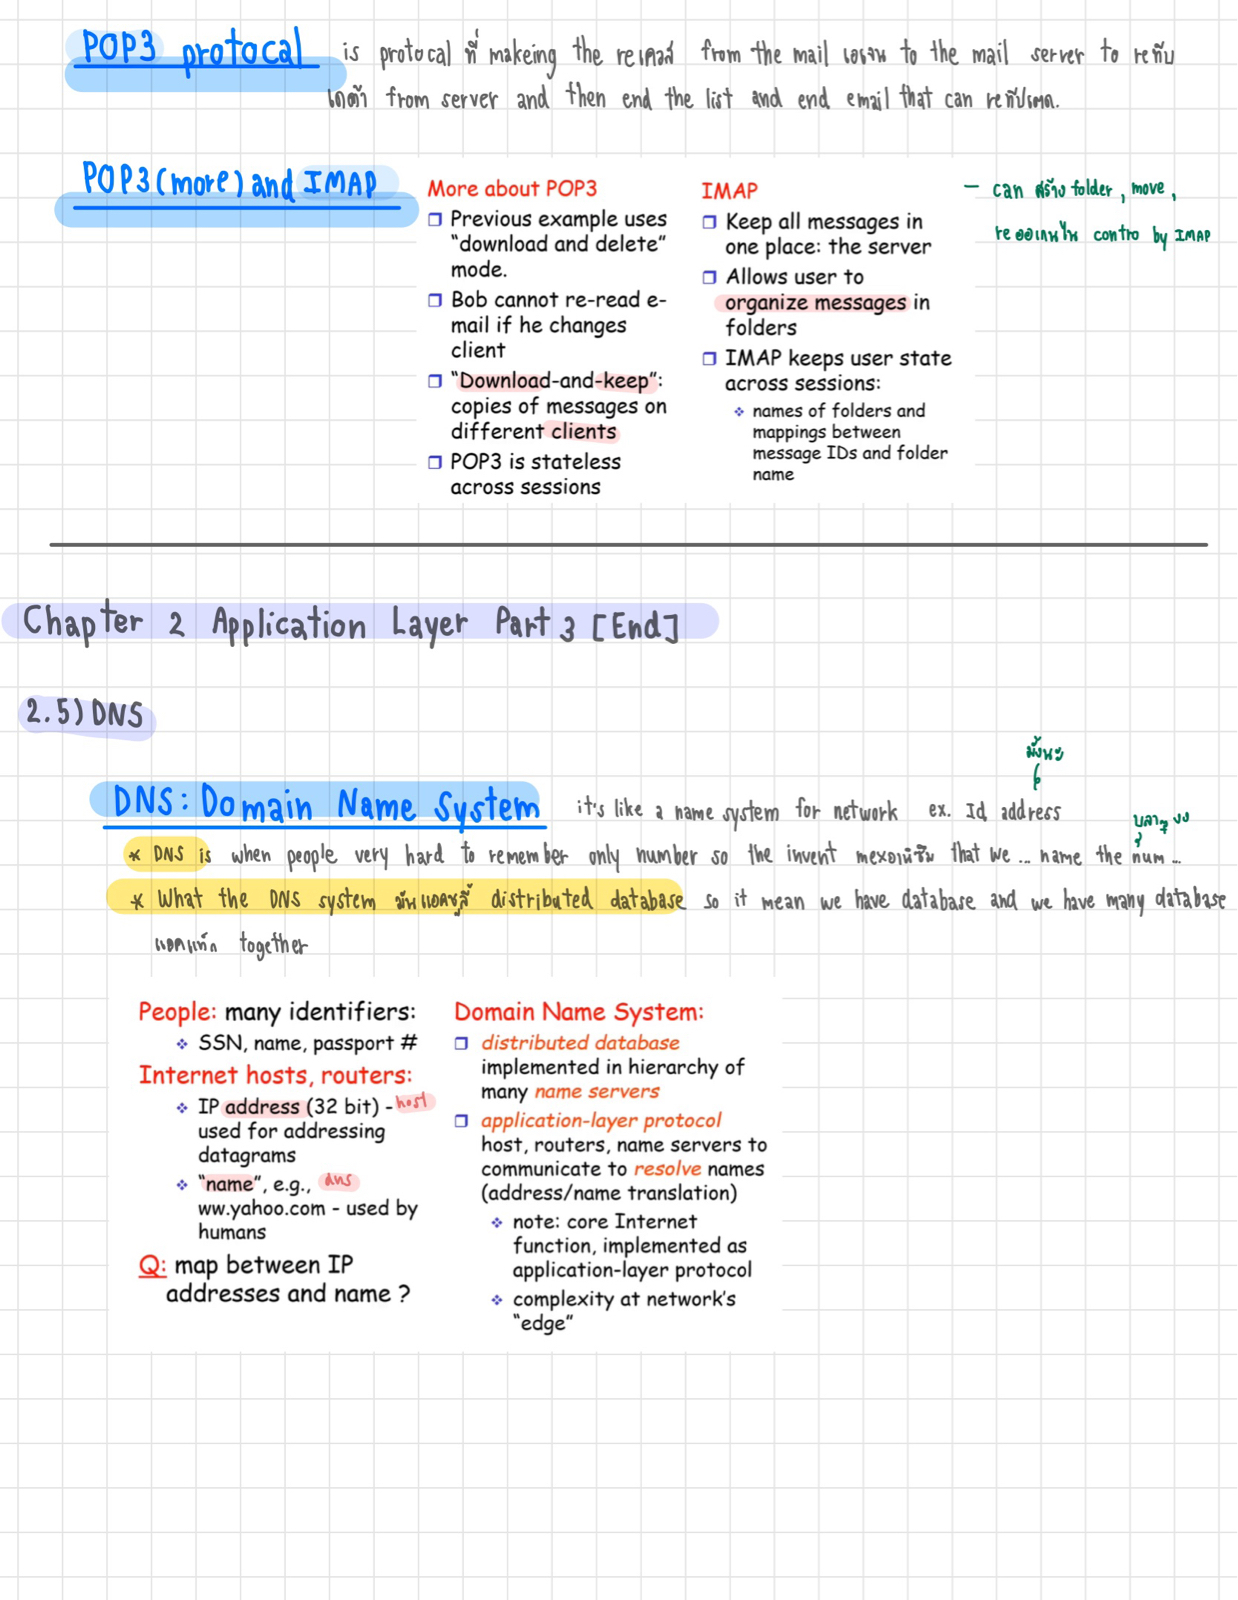 POP3 protocal is protocal ที่ makeing the reเควส from the mail เอเจน to the mail server to reทีบ
เดต้า from server and then end the list and end email that can reทีปเดต.
POP3(more) and IMAP
More about POP3
Previous example uses
“download and delete”
mode.
Bob cannot re-read e-
mail if he changes
client
“Download-and-keep”:
copies of messages on
different clients
POP3 is stateless
across sessions
IMAP
Keep all messages in
one place: the server
Allows user to
organize messages in
folders
IMAP keeps user state
across sessions:
names of folders and
mappings between
message IDs and folder
name
– can สร้าง folder, move,
contro by IMAP
Chapter 2 Application Layer Part 3 [End]
2.5) DNS
มั้งนะ
DNS: Domain Name System it's like a name system for network ex. Id address
* DNS is when people very hard to remember only number so the invent that we ... name the num ...
* What the DNS system distributed database so it mean we have database and we have many database
together
People: many identifiers:
SSN, name, passport #
Internet hosts, routers:
IP address (32 bit) - host
used for addressing
datagrams
“name”, e.g., dns
ww.yahoo.com - used by
humans
Q: map between IP
addresses and name ?
Domain Name System:
distributed database
implemented in hierarchy of
many name servers
application-layer protocol
host, routers, name servers to
communicate to resolve names
(address/name translation)
note: core Internet
function, implemented as
application-layer protocol
complexity at network's
“edge”